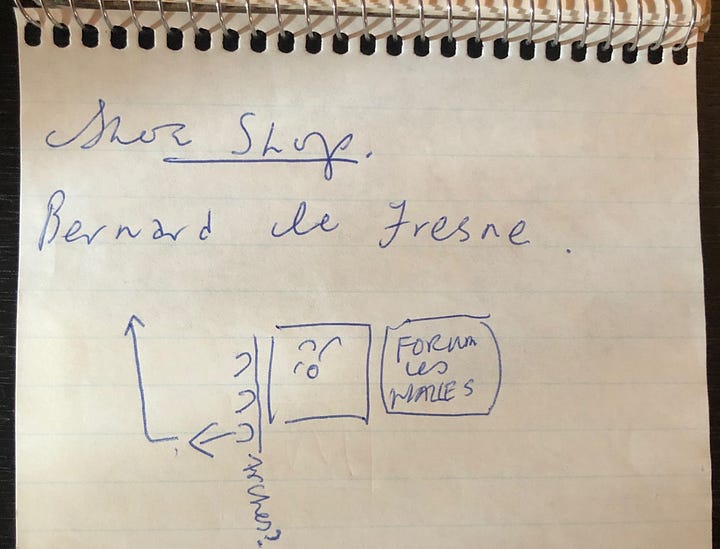 Shoe Shop.
Bernard de Fresne.
FORUM
LES
HALLES
Arches?